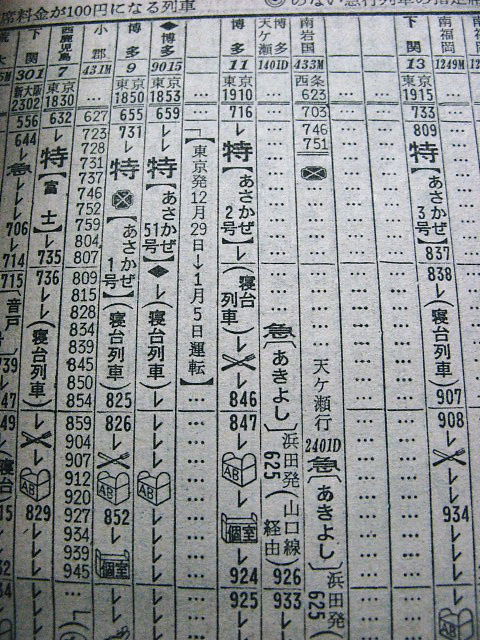 席料金が100円になる列車
のない急行列車の指定席
下関
301
新大阪
2302
556
644
急
706
714
715
音戸
西鹿児島
7
東京
1830
632
特
【富士】
735
736
(寝台列車)
854
829
小郡
431M
…
…
627
723
728
731
737
746
752
759
804
807
809
815
828
834
839
845
850
854
859
904
907
912
920
927
934
939
945
博多
9
東京
1850
655
731
特
【あさかぜ1号】
(寝台列車)
825
826
AB
852
個室
◆博多
9015
東京
1853
659
特
【あさかぜ51号】
◆
(寝台列車)
AB
【東京発12月29日→1月5日運転】
博多
11
東京
1910
716
特
【あさかぜ2号】
(寝台列車)
846
847
AB
個室
924
925
博多
天ケ瀬
1401D
急
〔あきよし〕
浜田発
625
(山口線経由)
926
933
南岩国
433M
西条
623
703
746
751
天ケ瀬行
2401D
急
〔あきよし〕
浜田発
625
下関
13
東京
1915
733
809
特
【あさかぜ3号】
837
838
(寝台列車)
907
908
934
AB
南福岡
1249M